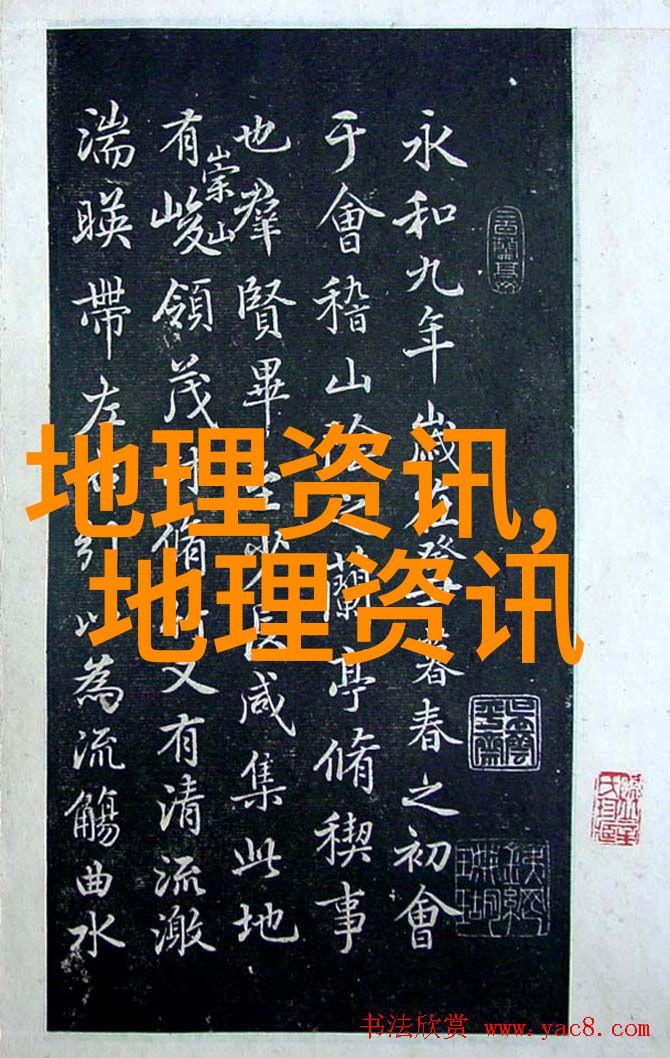 永和九年歲在癸暮春之初會
于會稽山陰之蘭亭脩稧事
也羣賢畢至少長咸集此地
有崇山峻領茂林脩竹又有清流激
湍暎帶左右引以為流觴曲水
地理资讯,
地理资讯
书法欣赏 www.yac8.com